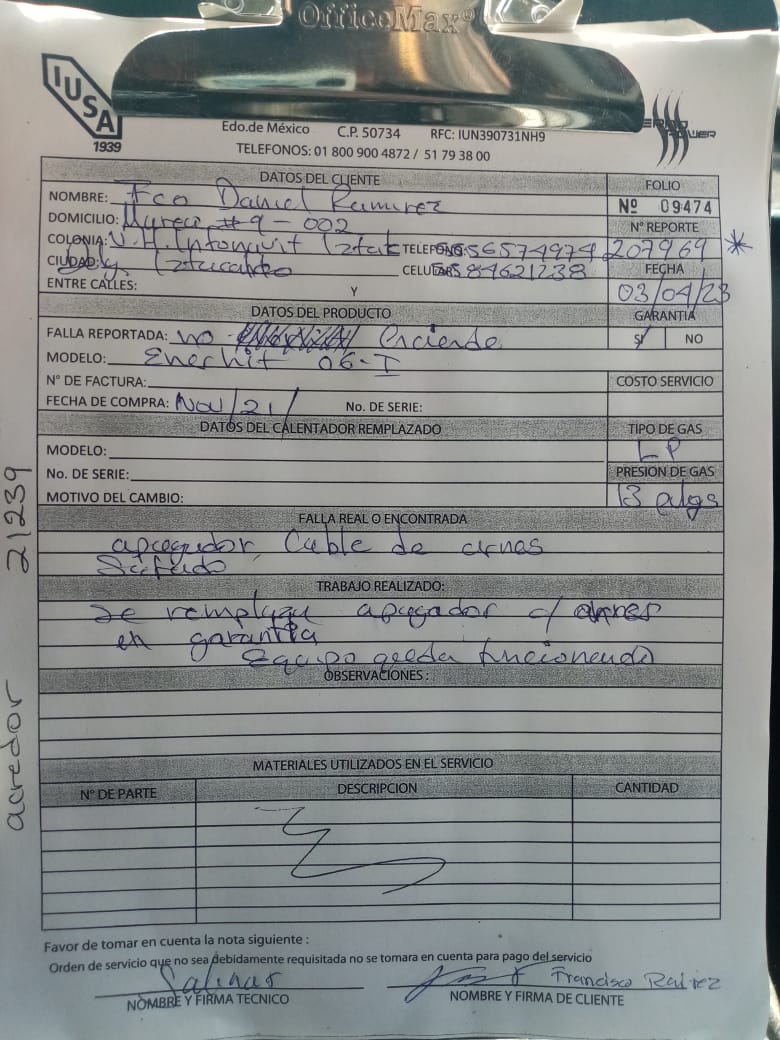 OfficeMax®
IUSA
1939
Edo.de México C.P. 50734 RFC: IUN390731NH9
TELEFONOS: 01 800 900 4872 / 51 79 38 00
POWER
DATOS DEL CLIENTE
FOLIO
NOMBRE: Fco Daniel Ramirez
Nº 09474
DOMICILIO: #9-002
N° REPORTE
COLONIA: V.H. Iztak TELEFONO: 56574974
207969 *
CIUDAD: Iztacalco CELULAR: 5584621238
FECHA
ENTRE CALLES: Y
03/04/23
DATOS DEL PRODUCTO
GARANTIA
FALLA REPORTADA: no enciende
SI NO
MODELO: Enerhit 06-I
N° DE FACTURA:
COSTO SERVICIO
FECHA DE COMPRA: Nov/21/ No. DE SERIE:
DATOS DEL CALENTADOR REMPLAZADO
TIPO DE GAS
MODELO:
LP
No. DE SERIE:
PRESION DE GAS
MOTIVO DEL CAMBIO:
13 plgs
FALLA REAL O ENCONTRADA
apagador, Cable de arnes
Safado
TRABAJO REALIZADO:
se remplaza apagador c/ arnes
en garantia
Equipo queda funcionando
OBSERVACIONES :
MATERIALES UTILIZADOS EN EL SERVICIO
N° DE PARTE DESCRIPCION CANTIDAD
Favor de tomar en cuenta la nota siguiente :
Orden de servicio que no sea debidamente requisitada no se tomara en cuenta para pago del servicio
Salinas
Francisco
NOMBRE Y FIRMA TECNICO
NOMBRE Y FIRMA DE CLIENTE
acredor 21239